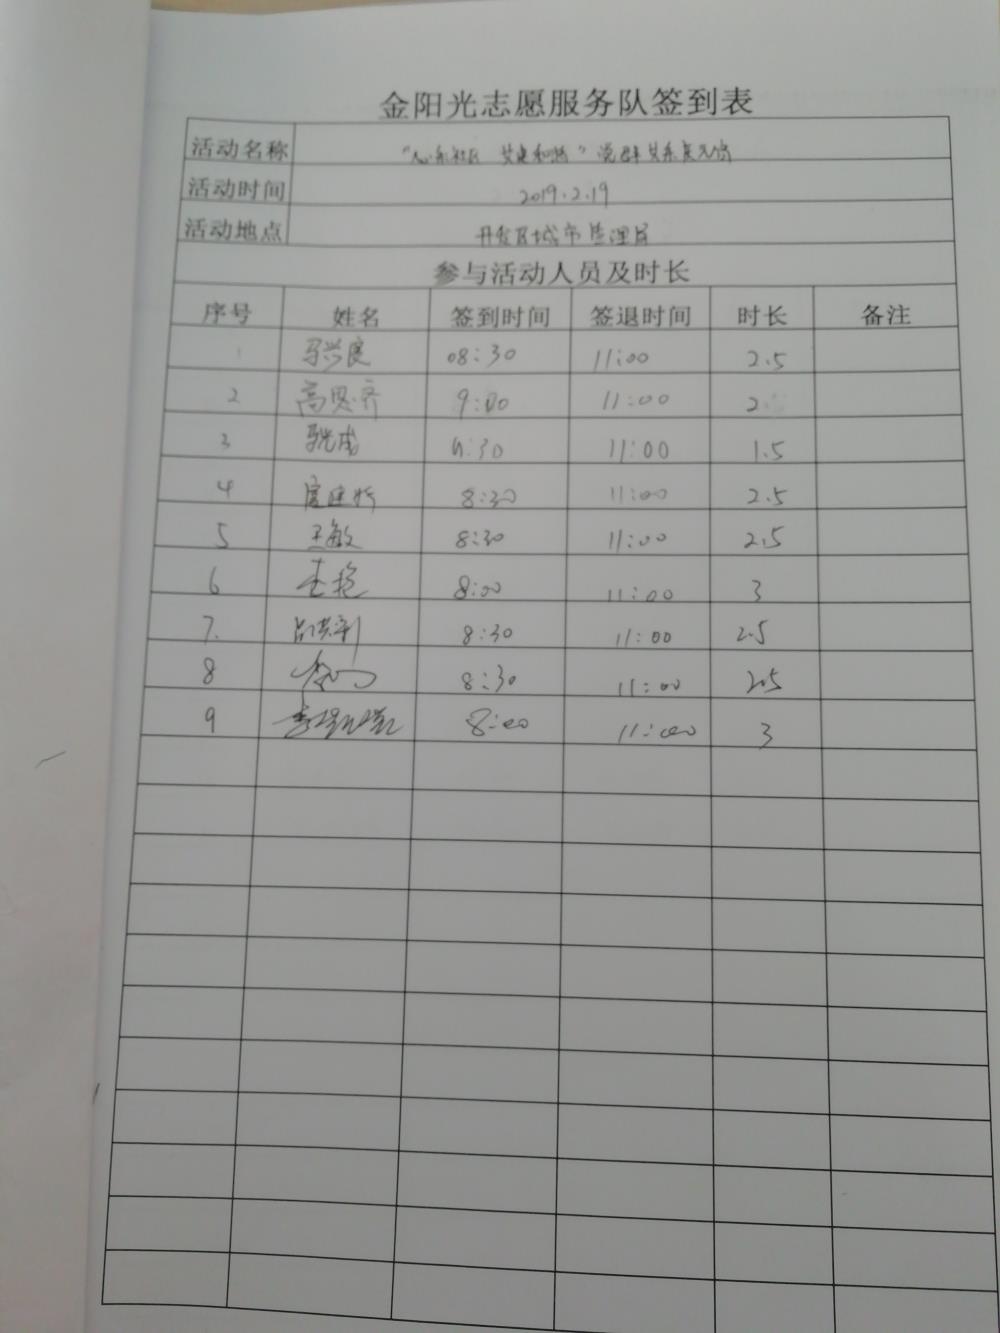 金阳光志愿服务队签到表
活动名称 "心系社区 共建和谐"
活动时间 2019.2.19
活动地点 开发区城市管理局
参与活动人员及时长
序号 姓名 签到时间 签退时间 时长 备注
1 马兴良 08:30 11:00 2.5
2 高思齐 9:00 11:00 2
3 :30 11:00 1.5
4 8:30 11:00 2.5
5 王敏 8:30 11:00 2.5
6 李艳 8:00 11:00 3
7. 8:30 11:00 2.5
8 8:30 11:00 2.5
9 8:00 11:00 3